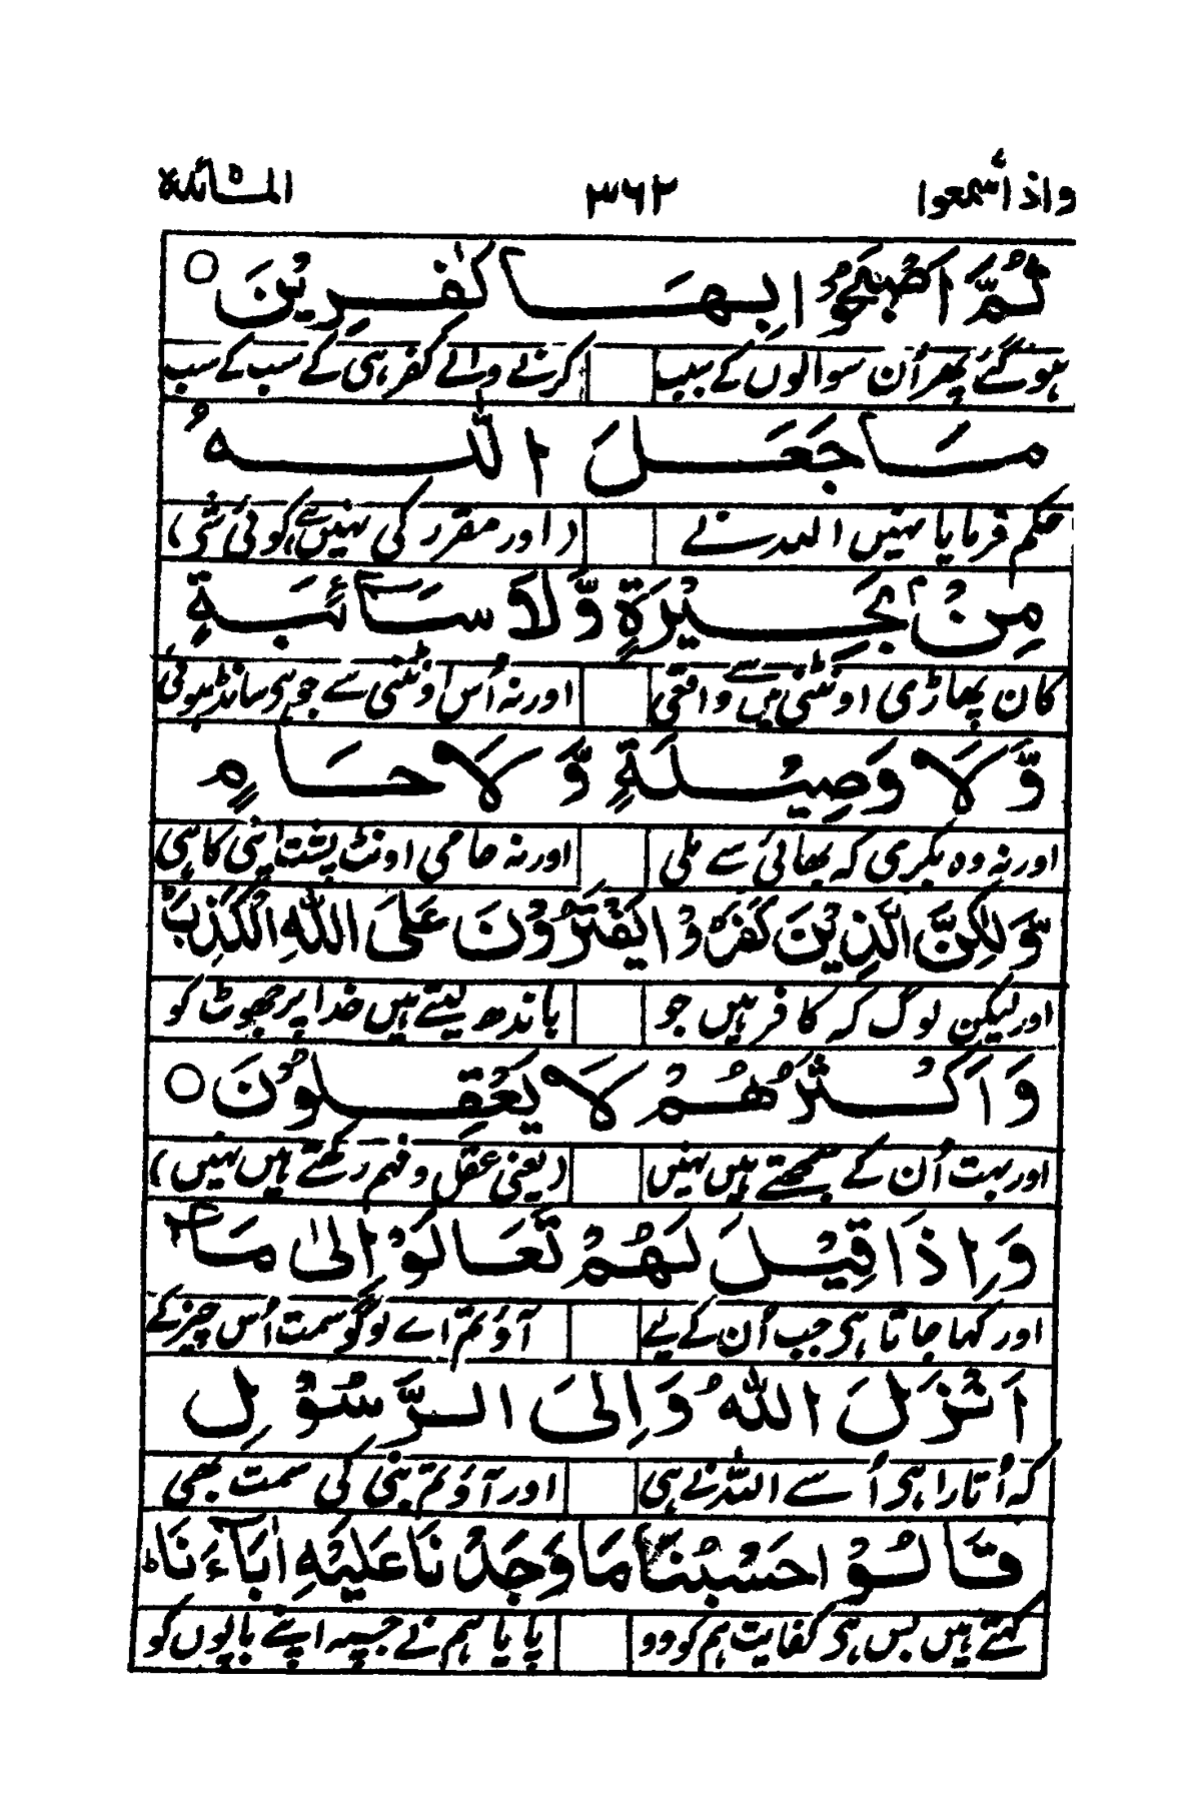 واذا سمعوا ۳۶۲ المائدة
ثُمَّ اَصْبَحُوْا بِهَا كٰفِرِيْنَ ○
ہوگئے پھر اُن سوالوں کے سبب کرنے والے کفر ہی کے سب کے سب
مَا جَعَلَ اللّٰهُ
حکم فرمایا نہیں اللہ نے (اور مقرر کی نہیں ہے کوئی شی)
مِنْۢ بَحِيْرَةٍ وَّلَا سَآئِبَةٍ
کان پھاڑی اونٹنی میں سے واقعی اور نہ اُس اونٹنی سے جو ہی سانڈ ہوئی
وَّلَا وَصِيْلَةٍ وَّلَا حَامٍ
اور نہ وہ بکری کہ بھائی سے ملی اور نہ حامی اونٹ پشت اپنی کا ہی
وَّلٰكِنَّ الَّذِيْنَ كَفَرُوْا يَفْتَرُوْنَ عَلَى اللّٰهِ الْكَذِبَ
اور لیکن لوگ کہ کافر ہیں جو باندھ لیتے ہیں خدا پر جھوٹ کو
وَاَكْثَرُهُمْ لَا يَعْقِلُوْنَ ○
اور بہت اُن کے سمجھتے ہیں نہیں (یعنی عقل و فہم رکھتے ہیں نہیں)
وَاِذَا قِيْلَ لَهُمْ تَعَالَوْا اِلٰى مَآ
اور کہا جاتا ہی جب اُن کے لیے آؤ تم اے لوگو سمت اُس چیز کے
اَنْزَلَ اللّٰهُ وَاِلَى الرَّسُوْلِ
کہ اُتارا ہی اُسے اللہ نے ہی اور آؤ تم نبی کی سمت بھی
قَالُوْا حَسْبُنَا مَا وَجَدْنَا عَلَيْهِ اٰبَآءَنَا ؕ
کہتے ہیں بس ہی کفایت ہم کو وو پایا ہم نے جسپہ اپنے باپوں کو